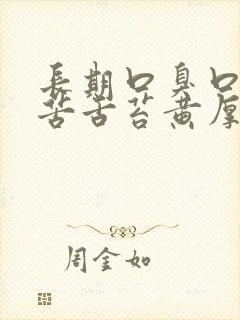 長期口臭口
苦舌苔黄厚
周金如